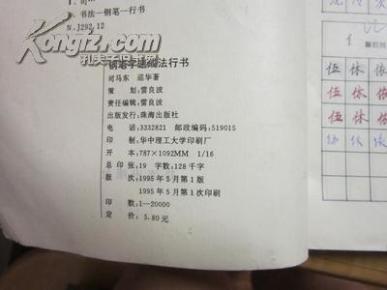 Ⅲ.书法—钢笔—行书
N.J292.12
Kongfz.com
孔夫子旧书网
钢笔字速成法行书
司马东 运华著
策 划:雷良波
责任编辑:雷良波
出版发行:珠海出版社
电 话:3332821 邮政编码:519015
印 制:华中理工大学印刷厂
开 本:787×1092MM 1/16
总印张:19 字数:128千字
版 次:1995年5月第1版
1995年5月第1次印刷
印 数:1—20000
定 价:5.80元
伍 休
伍 休
伍 休